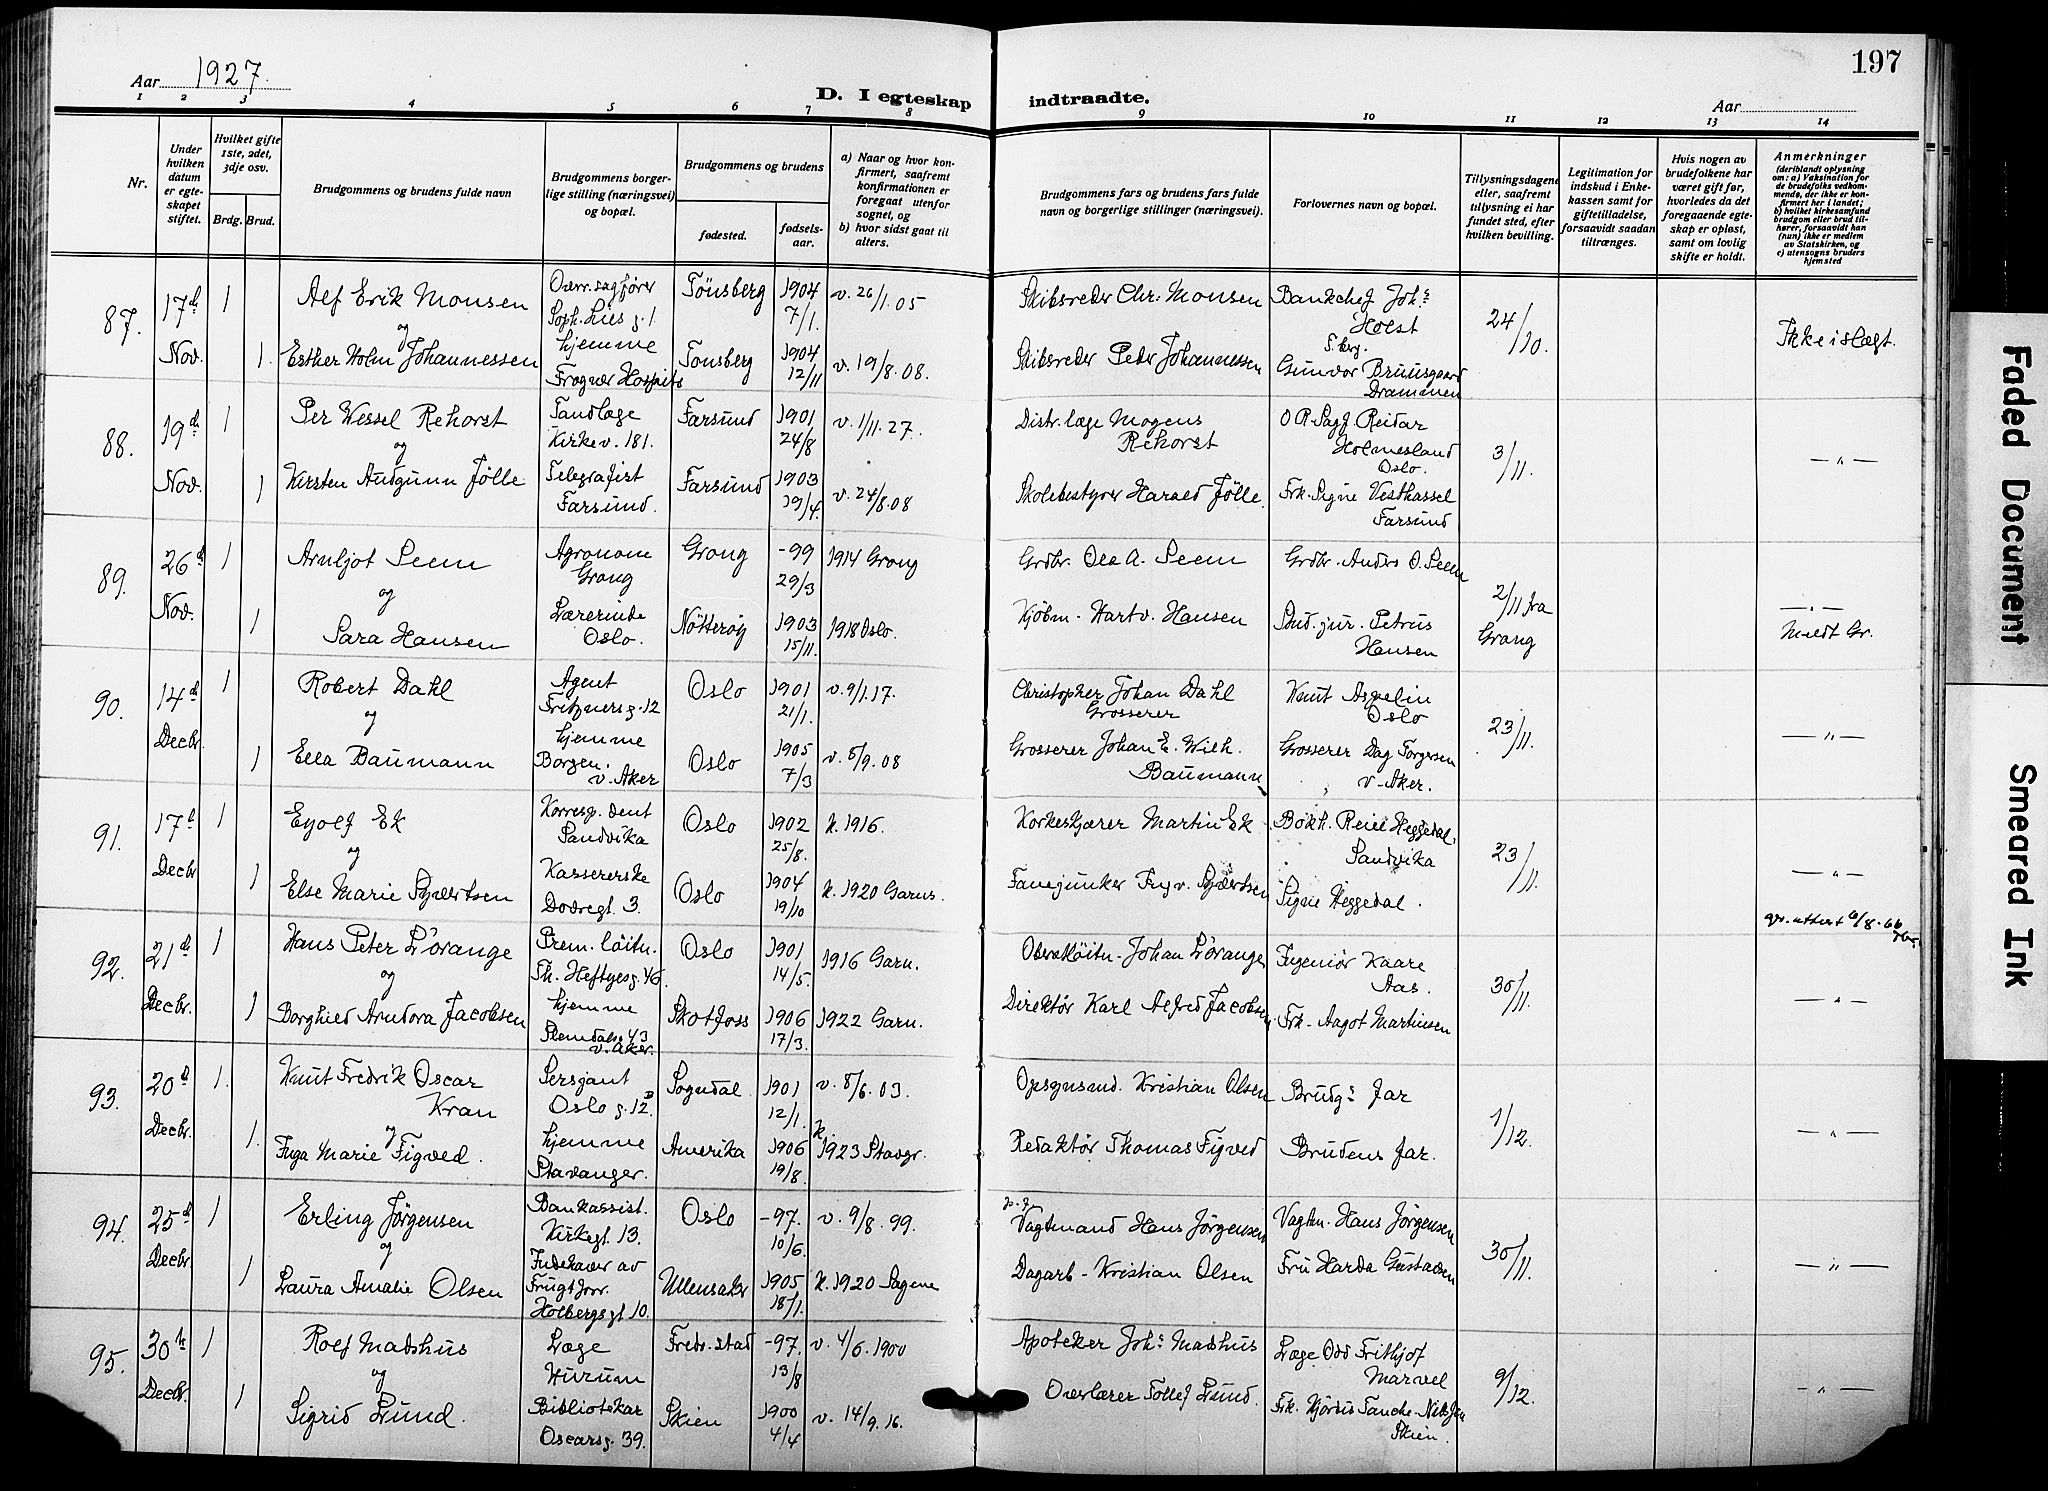 Aar 1927.
D. I egteskap indtraadte.
Aar
197
1 2 3 4 5 6 7 8 9 10 11 12 13 14
Nr.
Under hvilken datum er egteskapet stiftet.
Hvilket gifte 1ste, 2det, 3dje osv.
Brdg. Brud.
Brudgommens og brudens fulde navn
Brudgommens borgerlige stilling (næringsvei) og bopæl.
Brudgommens og brudens
fødested.
fødselsaar.
a) Naar og hvor konfirmert, saafremt konfirmationen er foregaat utenfor sognet, og
b) hvor sidst gaat til alters.
Brudgommens fars og brudens fars fulde navn og borgerlige stillinger (næringsvei).
Forlovernes navn og bopæl.
Tillysningsdagene eller, saafremt tillysning ei har fundet sted, efter hvilken bevilling.
Legitimation for indskud i Enkekassen samt for giftetilladelse, forsaavidt saadan tiltrænges.
Hvis nogen av brudefolkene har været gift før, hvorledes da det foregaaende egteskap er opløst, samt om lovlig skifte er holdt.
Anmerkninger (deriblandt oplysning om: a) Vaksination for de brudefolks vedkommende, der ikke er konfirmert her i landet; b) hvilket kirkesamfund brudgom eller brud tilhører, forsaavidt han (hun) ikke er medlem av Statskirken, og c) utensogns bruders hjemsted
87. 17d Nov. 1 Alf Erik Monsen Overr.sagfører Soph. Lies g. 1 Tönsberg 1904 7/1. v. 26/1.05 Skibsreder Chr. Monsen Bankchef Johs Holst T.berg. 24/10. Ikke i slegt.
og
1. Esther Holm Johannessen hjemme Frogner Hospits Tönsberg 1904 12/11 v. 19/8.08. Skibsreder Peder Johannessen Gunvor Bruusgaard Drammen
88. 19d Nov. 1 Per Wessel Rehorst Tandlæge Kirkev. 181. Farsund 1901 24/8 v. 1/11.27. Distr.læge Mogens Rehorst O.R.Sagf. Reidar Holmesland Oslo. 3/11. — „ —
og
1 Kirsten Audgunn Jölle Telegrafist Farsund. Farsund 1903 19/4. v. 24/8.08 Skolebestyrer Harald Jölle. Frk. Signe Vesthassel Farsund
89. 26d Nov. 1 Arnljot Seem Agronom Grong Grong -99 29/3 1914 Grong Grdbr. Ola A. Seem Grdbr. Anders O. Seem 2/11 fra Grong — „ —
og
1 Sara Hansen Lærerinde Oslo. Nötteröy 1903 15/11. 1918 Oslo. Kjöbm. Hartv. Hansen Stud. jur. Petrus Hansen Meldt Gr.
90. 14d Decbr. 1 Robert Dahl Agent Fritznersg. 12 Oslo 1901 21/1. v. 9/1.17. Christopher Johan Dahl Grosserer Knut Aspelin Oslo 23/11. — „ —
og
1 Ella Baumann hjemme Borgen. v. Aker Oslo 1905 7/3 v. 8/9.08 Grosserer Johan E. Wilh. Baumann Grosserer Dag Torgersen v. Aker.
91. 17d Decbr 1 Eyolf Ek Korresp.dent Sandvika Oslo 1902 25/8. k. 1916. Korkeskjærer Martin Ek Bokh. Reiel Heggedal, Sandvika 23/11. — „ —
og
1 Else Marie Syvertsen Kassererske Dovregt. 3. Oslo 1904 19/10 k. 1920 Garns. Fanejunker Yngv. Syvertsen Signe Heggedal.
92. 21d Decbr. 1 Hans Peter L'orange Prem. löitn. Th. Heftyesg. 46. Oslo 1901 14/5. 1916 Garn. Oberstlöitn. Johan L'orange Ingeniör Kaare Aas. 30/11. — „ —
og
1 Borghild Arndora Jacobsen hjemme Slemdalsv. 43 v. Aker. Skotfoss 1906 17/3. 1922 Garn. Direktör Karl Alfred Jacobsen Frk. Aagot Martinsen
93. 20d Decbr. 1. Knut Fredrik Oscar Kran Sersjant Oslo g. 12D Sogndal 1901 12/1. v. 8/6.03. Opsynsmd. Kristian Olsen Brudgs far 1/12. — „ —
og
1. Inga Marie Figved. hjemme Stavanger. Amerika 1906 19/8. k. 1923 Stavgr. Redaktör Thomas Figved Brudens far.
94. 25d Decbr. 1 Erling Jörgensen Bankassist. Kirkegt. 13. Oslo -97. 10/6. v. 9/8.99. Vagtmand Hans Jörgensen Vagtm. Hans Jörgensen 30/11. — „ —
og
1 Laura Amalie Olsen Indehaver av Frugtforr. Holbergsgt 10. Ullensaker 1905 18/1. k. 1920 Sagene Dagarb. Kristian Olsen Fru Harda Gustavsen
95. 30te Decbr. 1 Rolf Madshus Læge Hurum Fredr.stad -97. 13/8 v. 4/6.1900 Apoteker Johs Madshus Læge Odd Frithjof Marvel 9/12. — „ —
og
1 Sigrid Lund. Bibliotekar Oscarsg. 39. Skien 1900 4/4 v. 14/9.16. Overlærer Tollef Lund. Frk. Hjördis Tanche-Nilssen Skien.
Faded Document
Smeared Ink